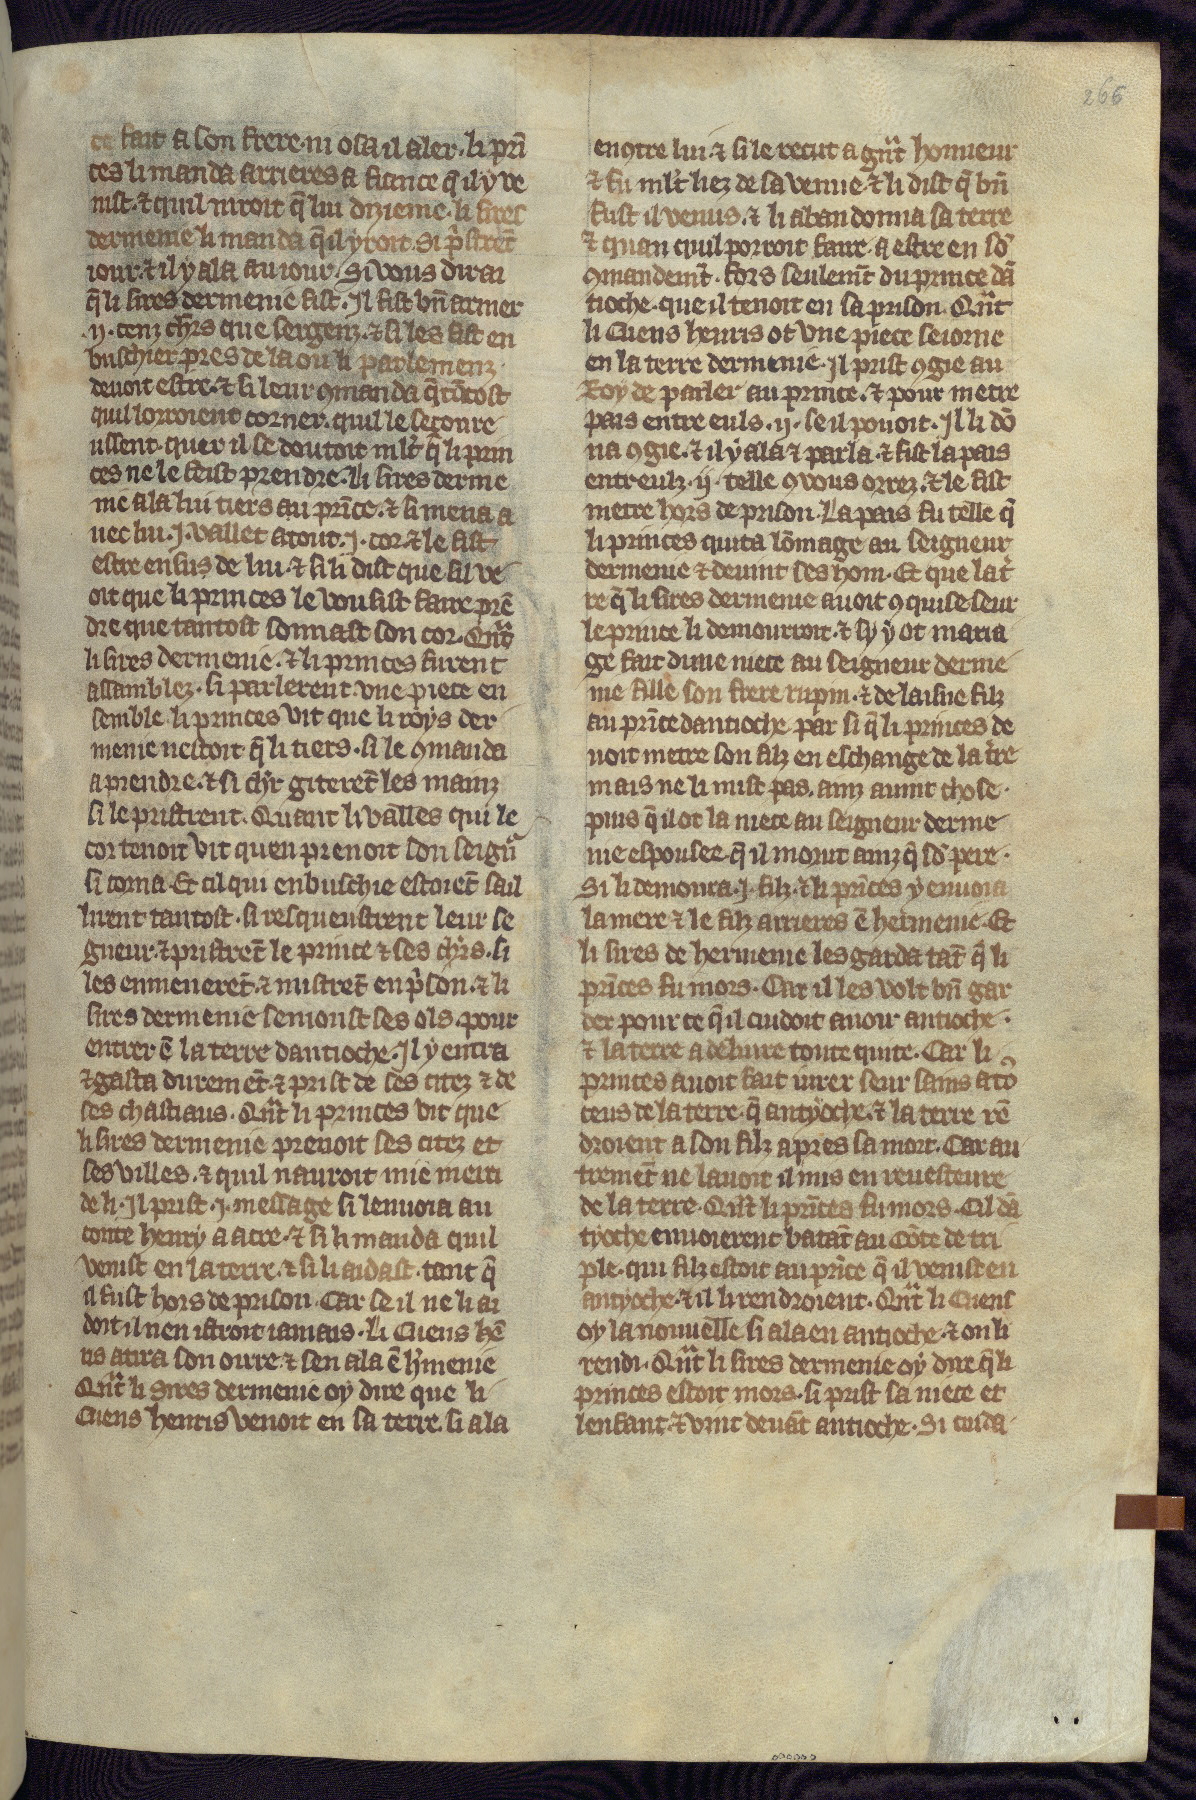 266
ce fait a son frere. ni osa il aler. li prī
ces li manda arrieres a fiance q̄ il y ve
nist. ⁊ quil niroit q̄ lui dizieme. li sires
dermenie li manda q̄ il yroit. Si p̄strēt
iour. ⁊ il y ala au iour. Si vous dirai
q̄ li sires dermenie fist. Il fist bn̄ armer
.ij. cenz ch̄rs que sergenz. ⁊ si les fist en
buschier pres de la ou li parlemenz
devoit estre. ⁊ si leur ꝯmanda q̄ tātost
quil lorroient corner. quil le secoure
ussent. quer il se doutoit ml̄t q̄ li prin
ces ne le feist prendre. Li sires derme
nie ala lui tiers au prīce. ⁊ si mena a
uec lui .j. vallet atout .j. cor. ⁊ le fist
estre ensus de lui. ⁊ si li dist que sil ve
oit que li princes le vousist faire prē
dre que tantost sonnast son cor. Qn̄t
li sires dermenie. ⁊ li princes furent
assamblez. si parlerent vne piece en
semble. li princes vit que li roys der
menie nestoit q̄ li tiers. si le ꝯmanda
a prendre. ⁊ si ch̄r giterēt les mainz
si le pristrent. Quant li valles qui le
cor tenoit vit quen prenoit son seign̄
si corna. Et cil qui enbuschie estoiēt sail
lirent tantost. si resqueustrent leur se
gneur. ⁊ pristrēt le prince ⁊ ses ch̄rs. si
les enmenerēt. ⁊ mistrēt en p̄son. ⁊ li
sires dermenie semonst ses ols. pour
entrer ē la terre dantioche. Il y entra
⁊ gasta durem̄t. ⁊ prist de ses citez ⁊ de
ses chastiaus. Qn̄t li princes vit que
li sires dermenie prenoit ses citez et
ses villes. ⁊ quil nauroit mie merci
de li. Il prist .j. message si lenuoia au
conte henry a acre. ⁊ si li manda quil
venist en la terre. ⁊ si li aidast. tant q̄
il fust hors de prison. Car se il ne li ai
doit il nen istroit iamais. Li Cuens hē
ris atira son oirre. ⁊ sen ala ē h̄menie
Qn̄t li Sires dermenie oy dire que li
Cuens henris venoit en sa terre. si ala
enꝯtre lui. ⁊ si le recut a gn̄t honneur
⁊ fu ml̄t liez de sa venue. ⁊ li dist q̄ bn̄
fust il venus. ⁊ li abandonna sa terre
⁊ quan quil porroit faire. a estre en sō
ꝯmandem̄t. fors seulem̄t du prince dā
tioche. que il tenoit en sa prison. Qn̄t
li Cuens henris ot vne piece seiorne
en la terre dermenie. Il prist ꝯgie au
Roy de parler au prince. ⁊ pour metre
pais entre euls .ij. se il pouoit. Il li dō
na ꝯgie. ⁊ il y ala ⁊ parla. ⁊ fist la pais
entreulz .ij. telle ꝯ vous orrez. ⁊ le fist
metre hors de prison. La pais fu telle q̄
li princes quita lōmage au seigneur
dermenie ⁊ deuint ses hom. Et que la t̄
re q̄ li sires dermenie auoit ꝯquise seur
le prince li demourroit. ⁊ sy y ot maria
ge fait dune niece au seigneur derme
nie fille son frere rupin. ⁊ de laisne filz
au prīce dantioche. par si q̄ li princes de
uoit metre son filz en eschange de la t̄re
mais ne li mist pas. ainz auint chose.
puis q̄ il ot la niece au seigneur derme
nie espousee. q̄ il morut ainz q̄ sō pere.
Si li demoura .j. filz. ⁊ li prīces y enuoia
la mere ⁊ le filz arrieres ē hermenie. Et
li sires de hermenie les garda tāt q̄ li
prīces fu mors. Car il les volt bn̄ gar
der pour ce q̄ il cuidoit auoir antioche.
⁊ la terre a deliure toute quite. Car li
princes auoit fait iurer seur sains a tō
ceus de la terre. q̄ antyoche. ⁊ la terre rē
droient a son filz apres sa mort. Car au
tremēt ne lauoit il mis en reuesteure
de la terre. Qn̄t li prīces fu mors. Cil dā
tyoche enuoierent batāt au Cōte de tri
ple. qui filz estoit au prīce q̄ il venist en
antyoche. ⁊ il li rendroient. Qn̄t li Cuens
oy la nouuelle si ala en antioche. ⁊ on li
rendi. Qn̄t li sires dermenie oy dire q̄ li
princes estoit mors. si prist sa niece et
lenfant. ⁊ vint deuāt antioche. Si cuida